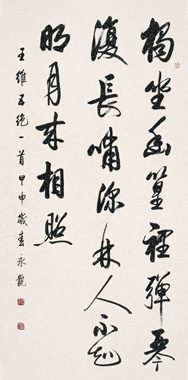 獨坐幽篁裡彈琴
復長嘯深林人不知
明月來相照
王維五絕一首甲申歲春永龍